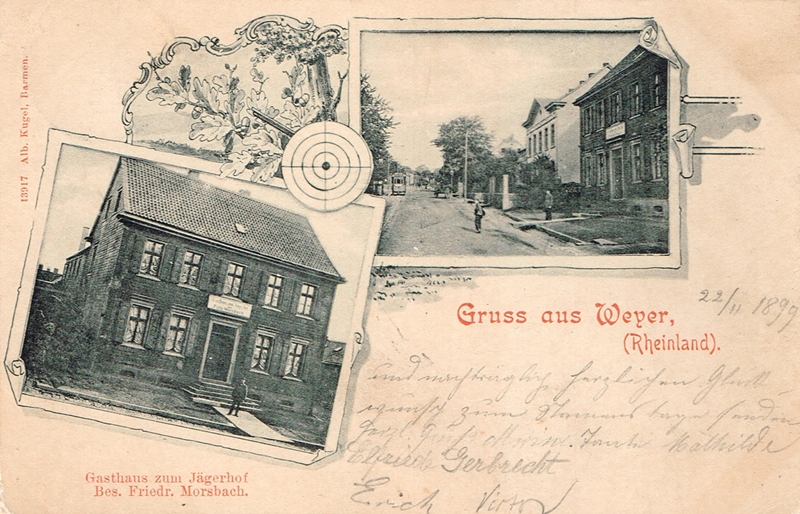 13917 Alb. Kugel, Barmen.
Gruss aus Weyer,
(Rheinland).
22/11 1899
und nachträglich herzlichen Glück-
wunsch zum Namenstage senden
herzl. Grüße Tante Mathilde
Elfriede Gerbrecht
Erich Victor
Gasthaus zum Jägerhof
Bes. Friedr. Morsbach.